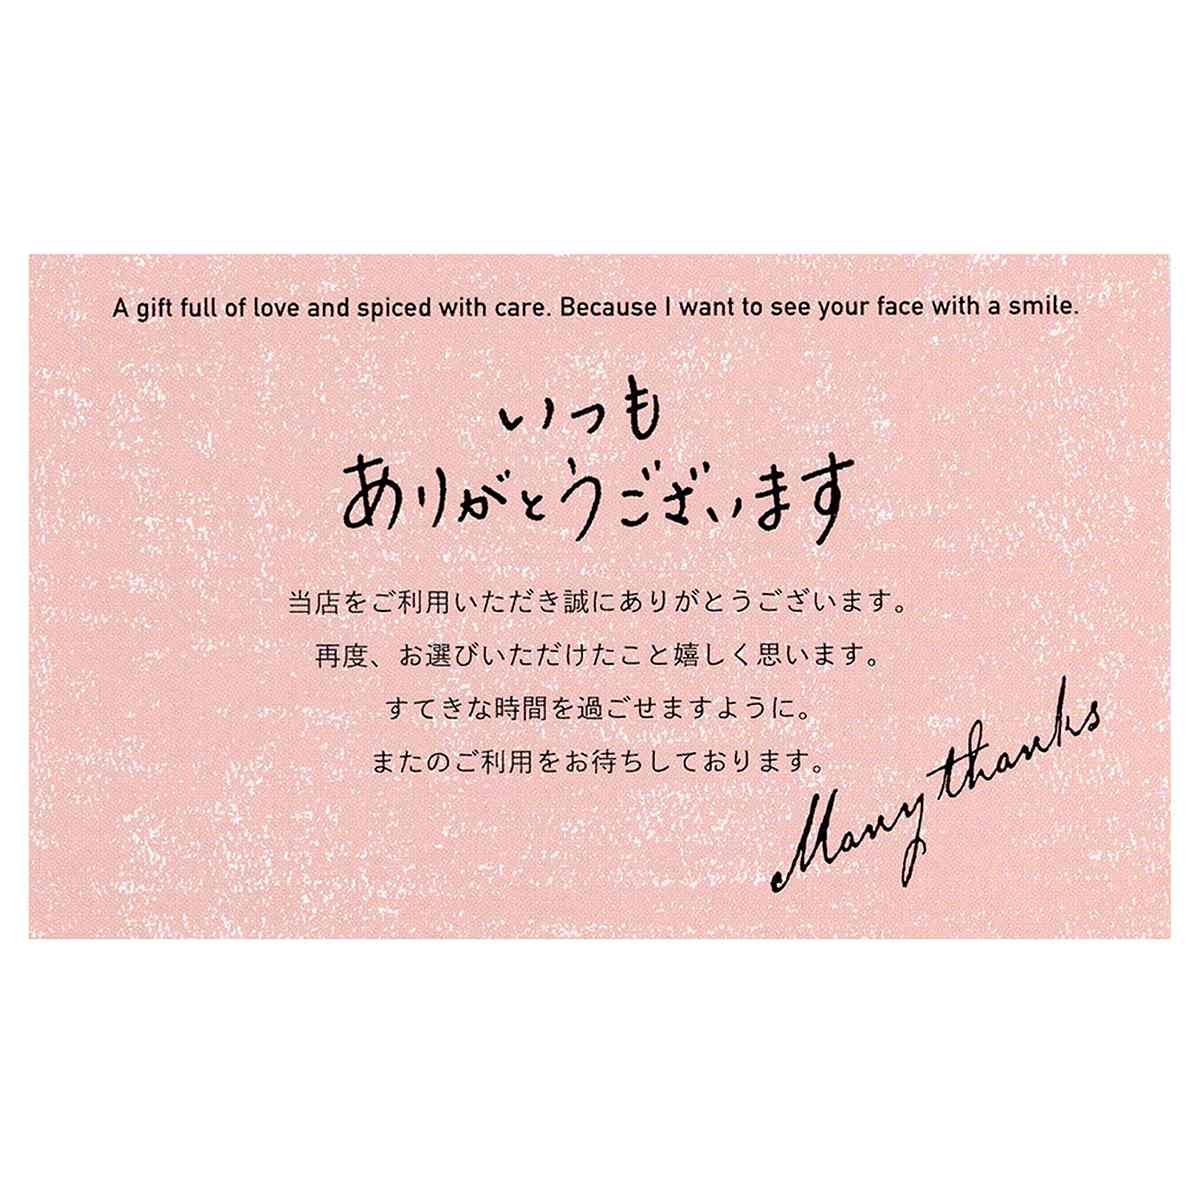 A gift full of love and spiced with care. Because I want to see your face with a smile.
いつも
ありがとうございます
当店をご利用いただき誠にありがとうございます。
再度、お選びいただけたこと嬉しく思います。
すてきな時間を過ごせますように。
またのご利用をお待ちしております。
Many thanks